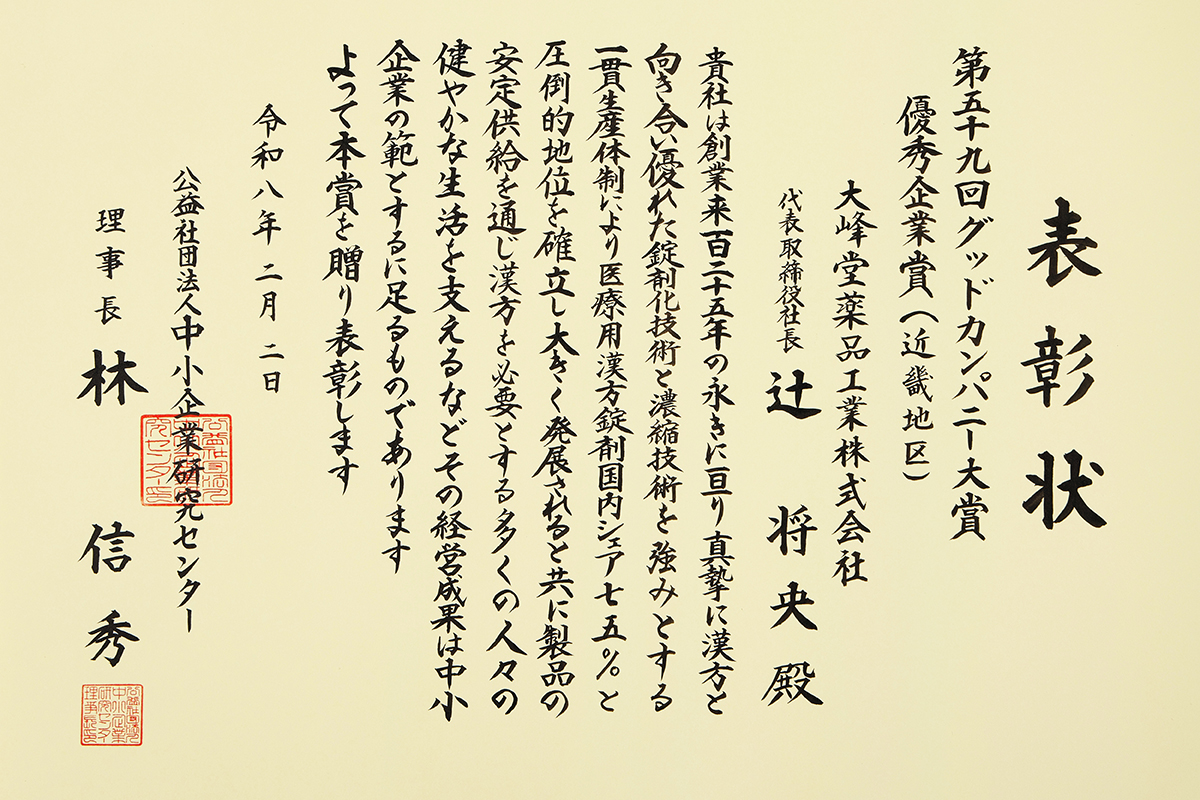 表彰状
第五十九回グッドカンパニー大賞
優秀企業賞(近畿地区)
大峰堂薬品工業株式会社
代表取締役社長 辻 将央 殿
貴社は創業来百二十五年の永きに亘り真摯に漢方と
向き合い優れた錠剤化技術と濃縮技術を強みとする
一貫生産体制により医療用漢方錠剤国内シェア七五%と
圧倒的地位を確立し大きく発展されると共に製品の
安定供給を通じ漢方を必要とする多くの人々の
健やかな生活を支えるなどその経営成果は中小
企業の範とするに足るものであります
よって本賞を贈り表彰します
令和八年 二月 二日
公益社団法人中小企業研究センター
理事長 林 信秀